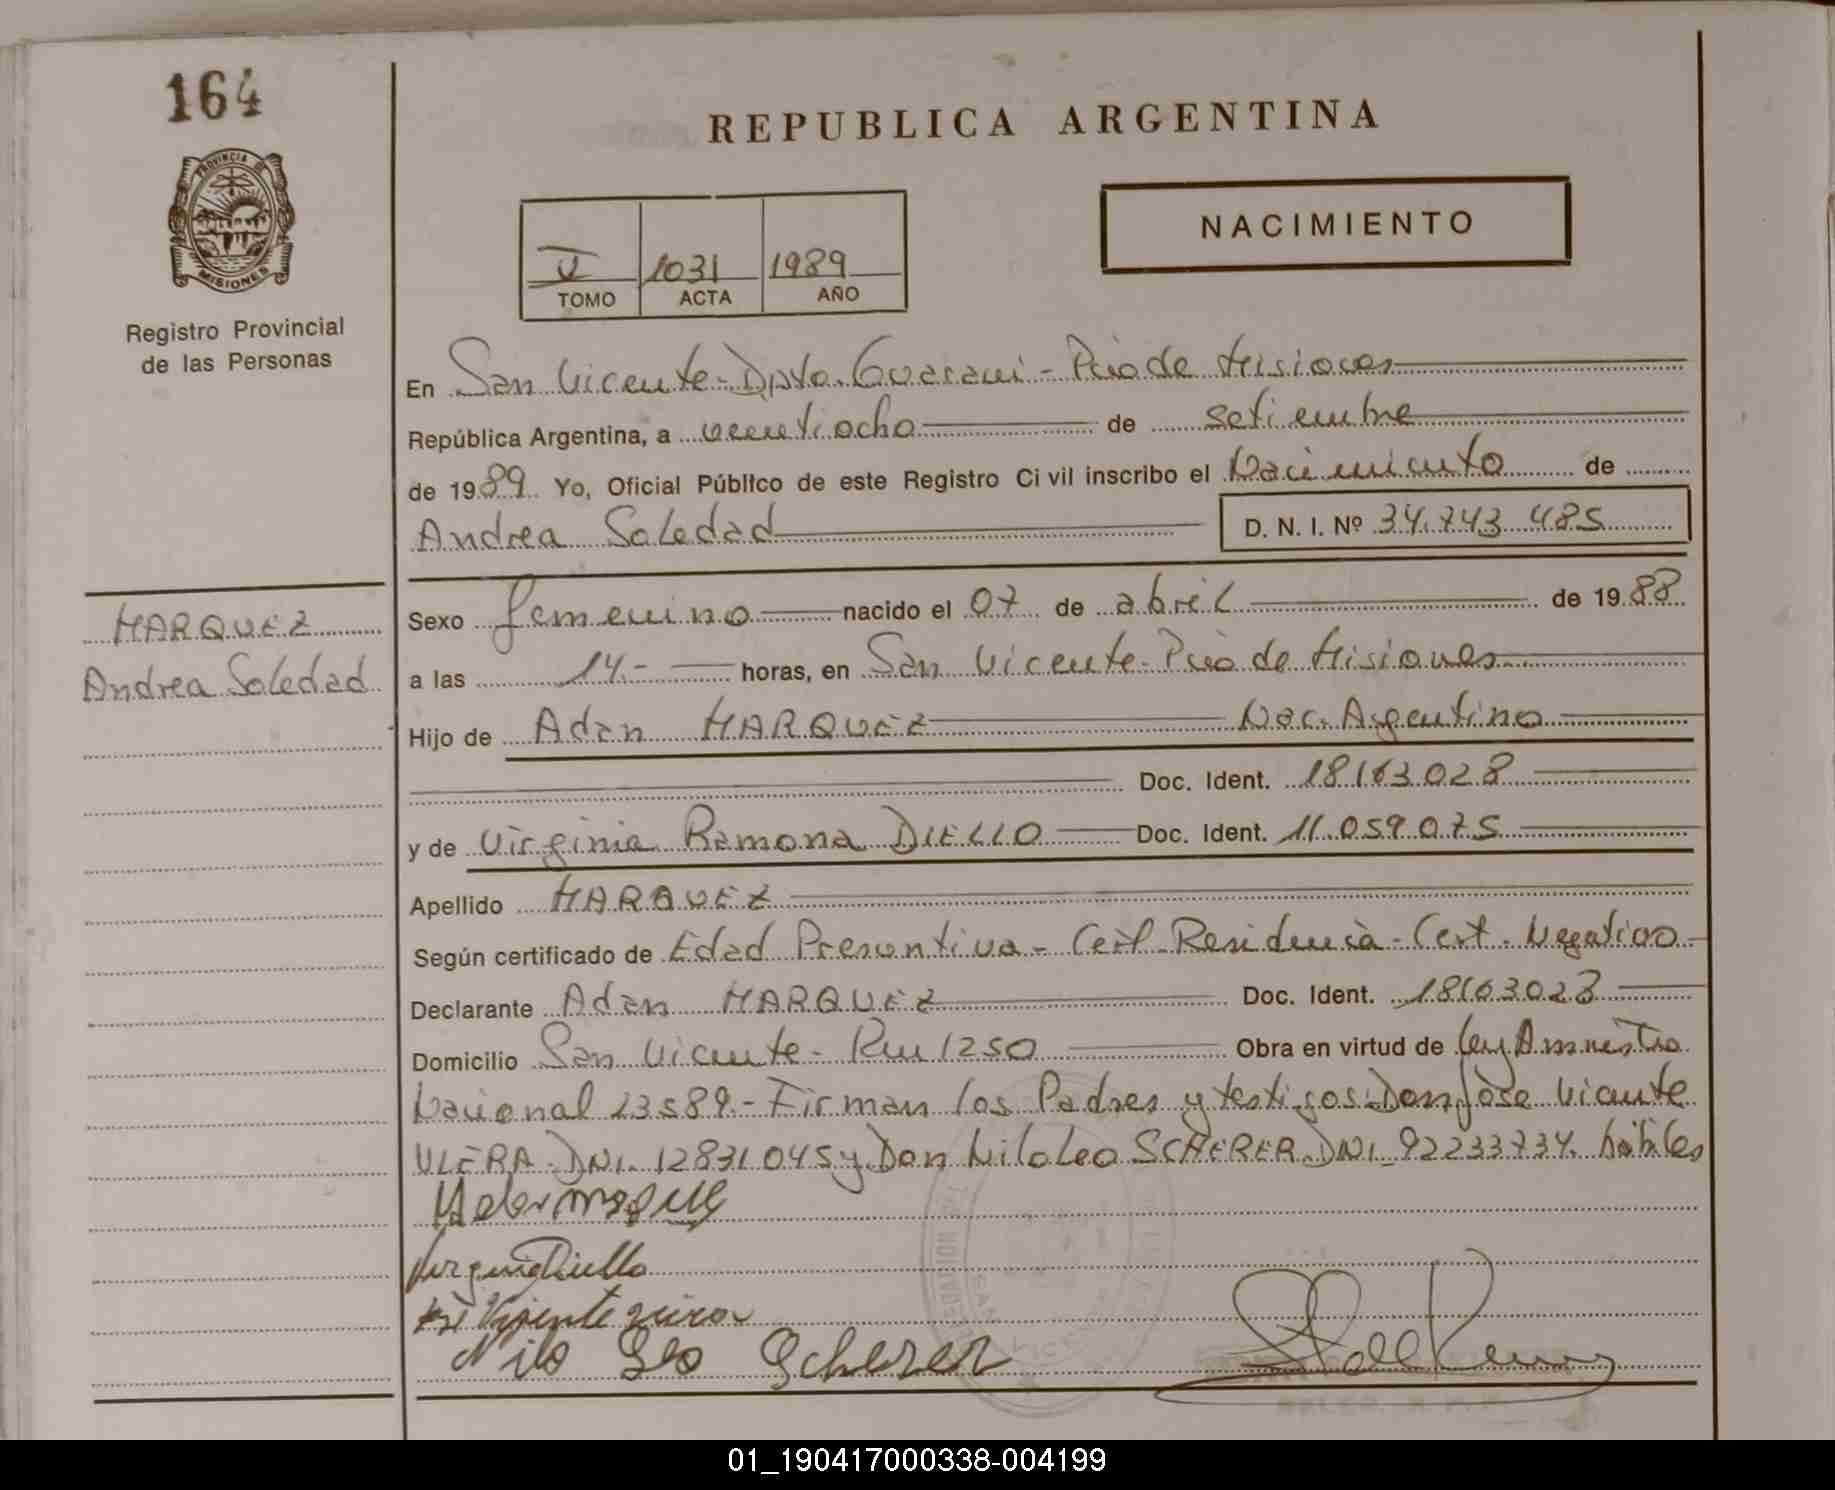 164
REPUBLICA ARGENTINA
PROVINCIA DE
MISIONES
Registro Provincial
de las Personas
V 1031 1989
TOMO ACTA AÑO
NACIMIENTO
En San Vicente - Dpto. Guarani - Pcia de Misiones
República Argentina, a veentiocho de setiembre
de 1989 Yo, Oficial Público de este Registro Civil inscribo el Nacimiento de
Andrea Soledad D. N. I. Nº 34.743.485
MARQUEZ
Andrea Soledad
Sexo femenino nacido el 07 de abril de 1988
a las 14.- horas, en San Vicente - Pcia de Misiones
Hijo de Adan MARQUEZ Nac. Argentino
Doc. Ident. 18163028
y de Virginia Ramona DIELLO Doc. Ident. 11.059.075
Apellido MARQUEZ
Según certificado de Edad Presuntiva - Cert. Residencia - Cert. Negativo -
Declarante Adan MARQUEZ Doc. Ident. 18163028
Domicilio San Vicente - Km 1250 Obra en virtud de Ley Amnistia
Nacional 23589.- Firman los Padres y testigos: Don Jose Vicente
DNI. 12831045 y Don Nilo Leo SCHERER DNI. 92233734. hábiles
Nilo Leo Scherer
01_190417000338-004199